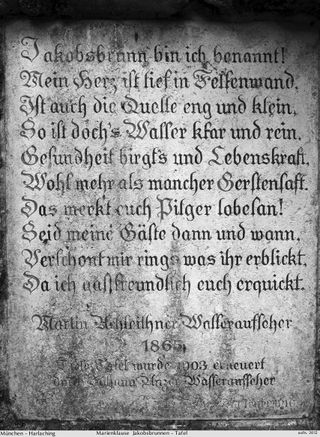 Jakobsbrunn bin ich benannt!
Mein Herz ist tief in Felsenwand.
Ist auch die Quelle eng und klein,
So ist doch's Wasser klar und rein.
Gesundheit birgt's und Lebenskraft,
Wohl mehr als mancher Gerstensaft.
Das merkt euch Pilger lobesan!
Seid meine Gäste dann und wann.
Verschont mir rings was ihr erblickt,
Da ich gastfreundlich euch erquickt.
Martin Achleithner Wasseraufseher
1865
Tafel wurde 1903 erneuert
durch Wasseraufseher
München - Harlaching
Marienklause Jakobsbrunnen - Tafel
2012